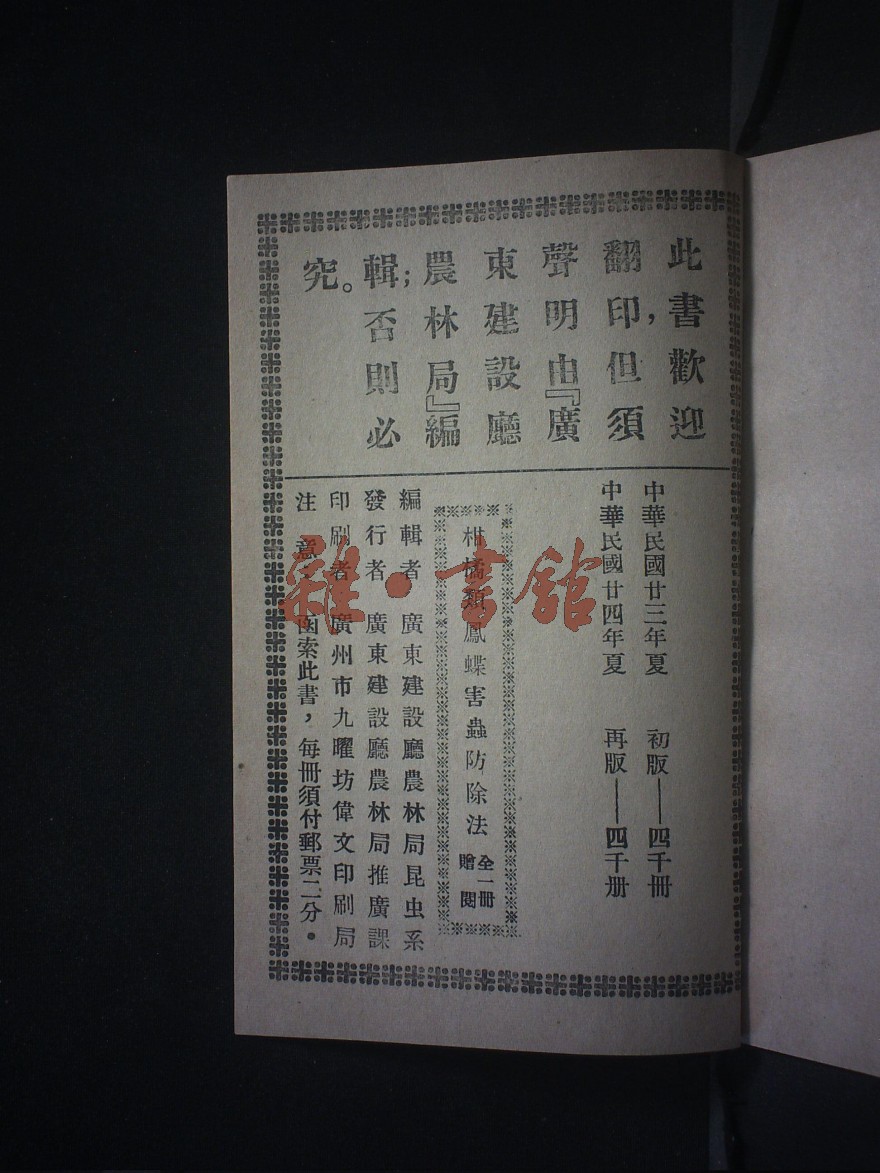 此書歡迎
翻印，但須
聲明由『廣
東建設廳
農林局』編
輯；否則必
究。
中華民國廿三年夏　初版——四千冊
中華民國廿四年夏　再版——四千册
柑橘類鳳蝶害蟲防除法　全一冊
贈閱
編輯者　廣東建設廳農林局昆虫系
發行者　廣東建設廳農林局推廣課
印刷者　廣州市九曜坊偉文印刷局
注意　函索此書，每冊須付郵票二分。
雜·書館